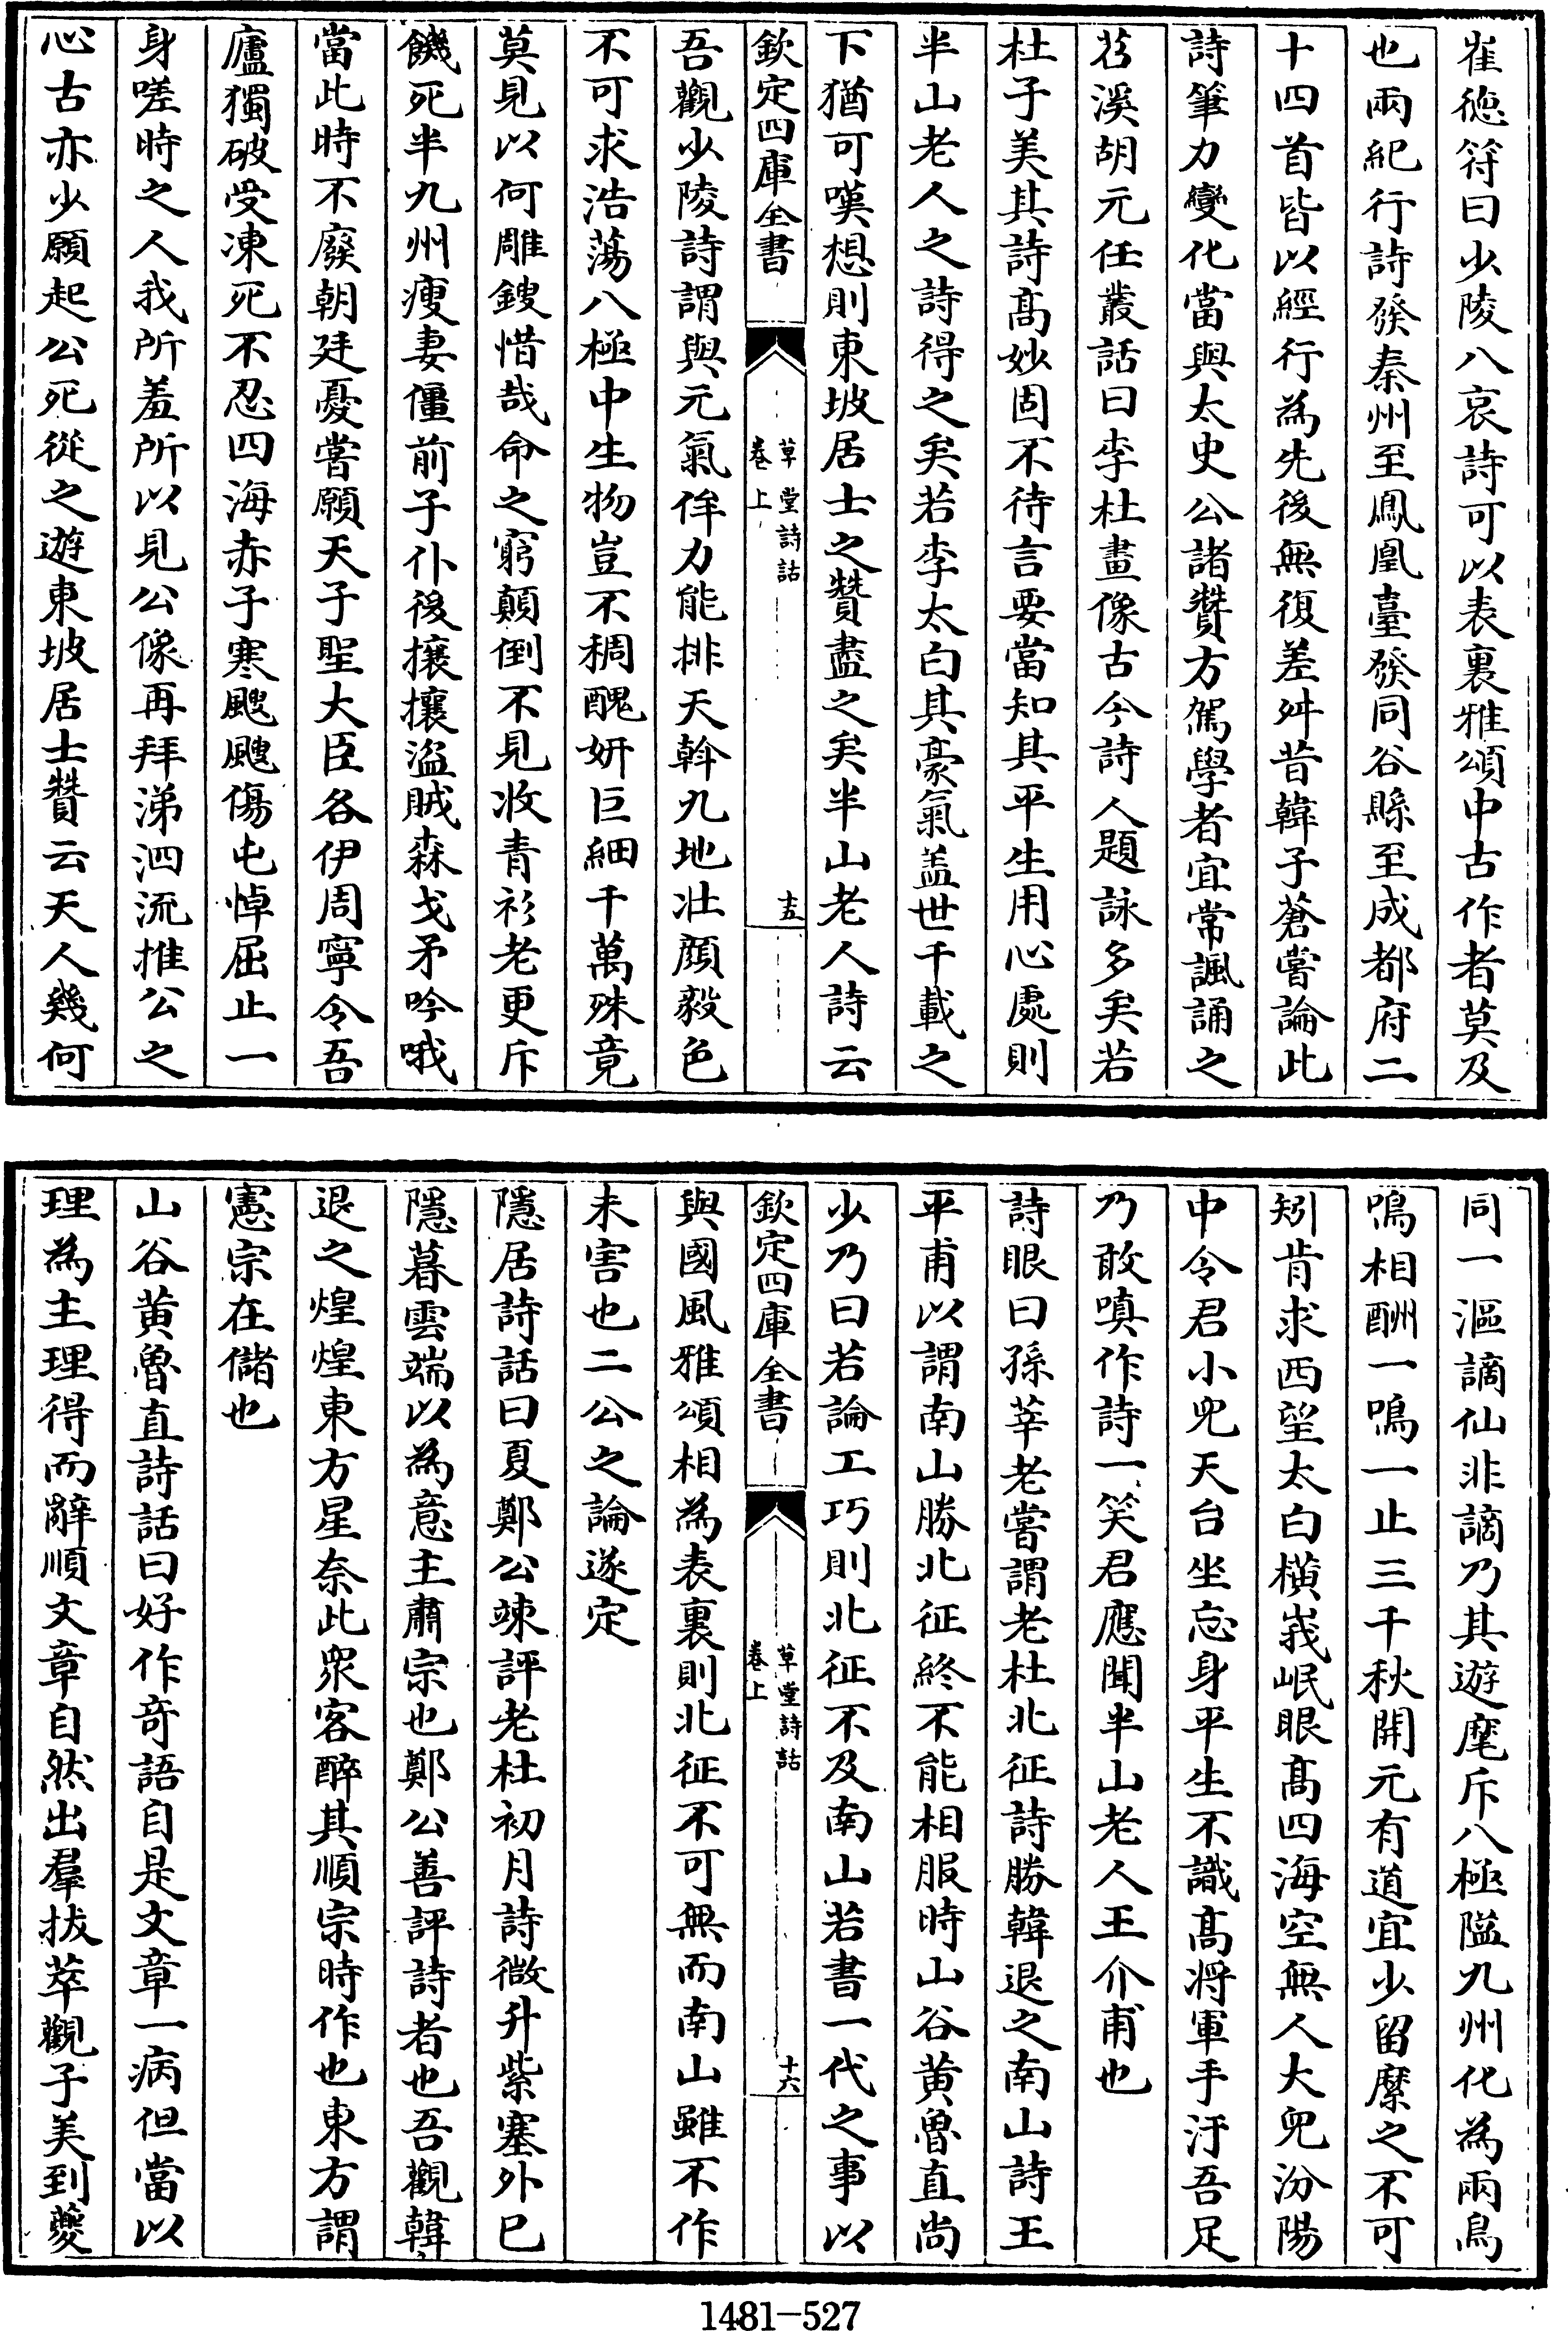 崔徳符曰少陵八哀詩可以表裏雅頌中古作者莫及
也兩紀行詩發秦州至鳳凰臺發同谷縣至成都府二
十四首皆以經行為先後無復差舛昔韓子蒼嘗論此
詩筆力變化當與太史公諸贊方駕學者宜常諷誦之
苕溪胡元任叢話曰李杜畫像古今詩人題詠多矣若
杜子美其詩髙妙固不待言要當知其平生用心處則
半山老人之詩得之矣若李太白其豪氣盖世千載之
下猶可嘆想則東坡居士之贊盡之矣半山老人詩云
欽定四庫全書
草堂詩話
卷上
十五
吾觀少陵詩謂與元氣侔力能排天斡九地壯顔毅色
不可求浩蕩八極中生物豈不稠醜妍巨細千萬殊竟
莫見以何雕鎪惜哉命之窮顛倒不見收青衫老更斥
饑死半九州瘦妻僵前子仆後攘攘盜賊森戈矛吟哦
當此時不廢朝廷憂嘗願天子聖大臣各伊周寧令吾
廬獨破受凍死不忍四海赤子寒颼颼傷屯悼屈止一
身嗟時之人我所羞所以見公像再拜涕泗流推公之
心古亦少願起公死從之遊東坡居士贊云天人幾何
同一漚謫仙非謫乃其遊麾斥八極隘九州化為兩鳥
鳴相酬一鳴一止三千秋開元有道宜少留縻之不可
矧肯求西望太白橫峩岷眼髙四海空無人大兒汾陽
中令君小兒天台坐忘身平生不識髙将軍手汙吾足
乃敢嗔作詩一笑君應聞半山老人王介甫也
詩眼曰孫莘老嘗謂老杜北征詩勝韓退之南山詩王
平甫以謂南山勝北征終不能相服時山谷黄魯直尚
少乃曰若論工巧則北征不及南山若書一代之事以
欽定四庫全書
草堂詩話
卷上
十六
與國風雅頌相為表裏則北征不可無而南山雖不作
未害也二公之論遂定
隱居詩話曰夏鄭公竦評老杜初月詩微升紫塞外已
隱暮雲端以為意主肅宗也鄭公善評詩者也吾觀韓
退之煌煌東方星奈此眾客醉其順宗時作也東方謂
憲宗在儲也
山谷黄魯直詩話曰好作奇語自是文章一病但當以
理為主理得而辭順文章自然出羣拔萃觀子美到夔
1481-527